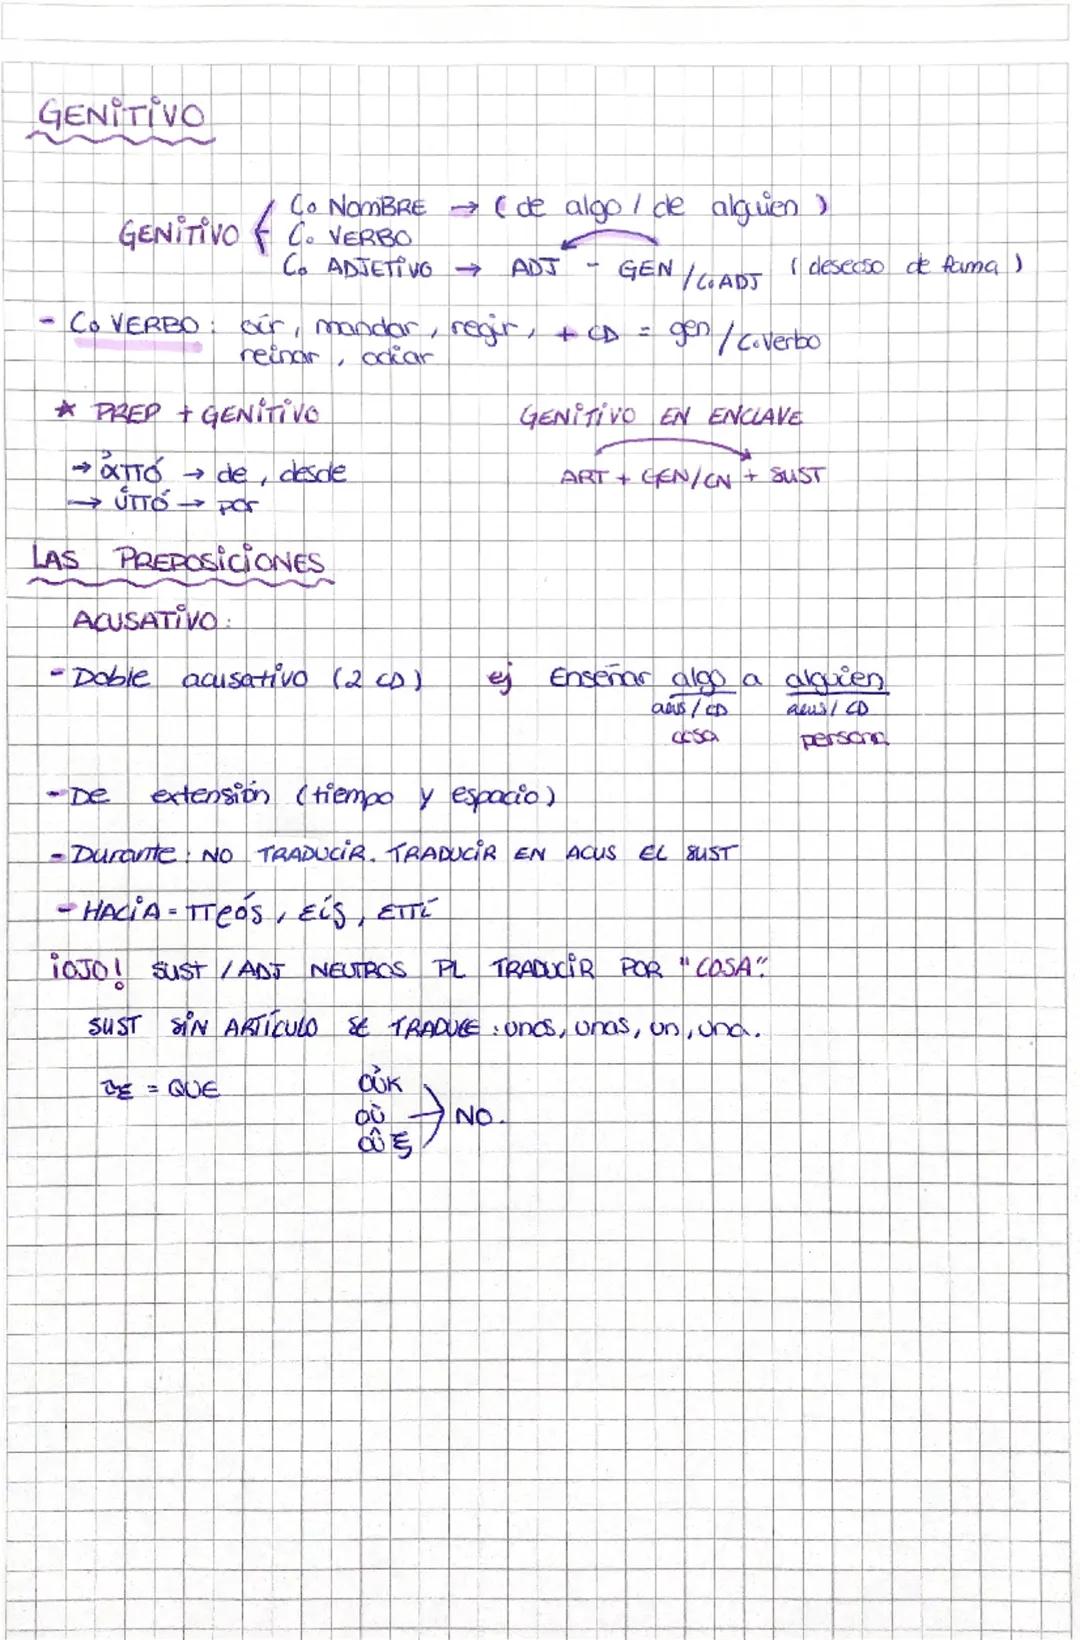 GENITIVO
GENITIVO { Co NOMBRE → (de algo / de alguien)
Co VERBO
Co ADJETIVO → ADJ - GEN / Co ADJ (deseoso de fama)
- Co VERBO: oír, mandar, regir, + CD = gen / Co Verbo
reinar, odiar
* PREP + GENITIVO
→ ἀπό → de, desde
→ ὑπό → por
GENITIVO EN ENCLAVE
ART + GEN/CN + SUST
LAS PREPOSICIONES
ACUSATIVO:
- Doble acusativo (2 CD) ej Enseñar algo a alguien
acus / CD acus / CD
cosa persona
- De extensión (tiempo y espacio)
- Durante: NO TRADUCIR. TRADUCIR EN ACUS EL SUST
- HACIA = πρós, εís, επí
¡OJO! SUST / ADJ NEUTROS PL TRADUCIR POR "COSA".
SUST SIN ARTÍCULO SE TRADUCE: unos, unas, un, una.
= QUE
οὐκ
οὐ → NO.